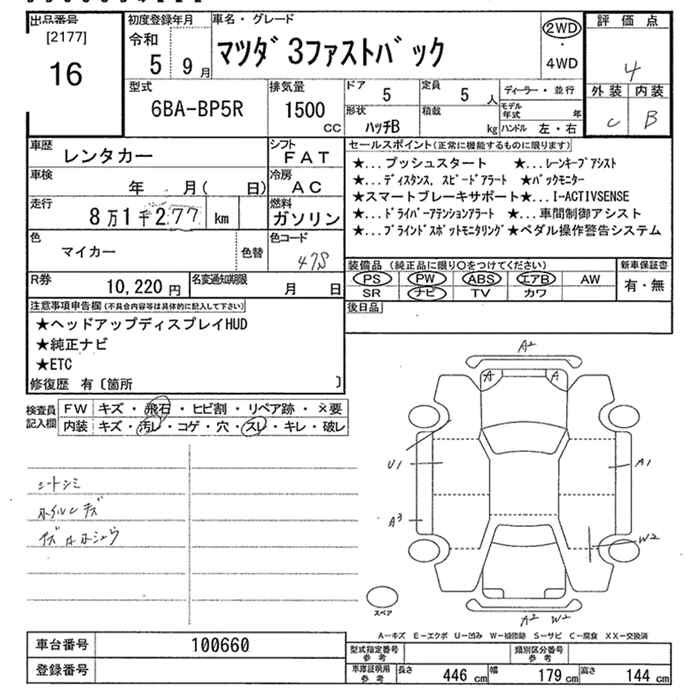 出品番号
[2177]
16
初度登録年月
令和
5 9月
車名・グレード
マツダ3ファストバック
2WD
・
4WD
評価点
4
外装 内装
C B
型式
6BA-BP5R
排気量
1500
CC
ドア
5
定員
5 人
ディーラー・並行
形状
ハッチB
積載
kg
モデル年式 年
ハンドル 左・右
車歴
レンタカー
シフト
FAT
車検
年 月( 日)
冷房
AC
走行
8万1千277 km
燃料
ガソリン
色
マイカー
色替
色コード
47S
R券
10,220円
名変通知期限
月 日
セールスポイント(正常に機能するものに限ります)
★...プッシュスタート ★...レーンキープアシスト
★...ディスタンス, スピードアラート ★バックモニター
★スマートブレーキサポート★...I-ACTIVSENSE
★...ドライバーアテンションアラート ★...車間制御アシスト
★...ブラインドスポットモニタリング★ペダル操作警告システム
装備品(純正品に限り○をつけてください)
PS PW ABS エアB AW
SR ナビ TV カワ
新車保証書
有・無
後日品
注意事項申告欄(不具合内容等は具体的に記入して下さい)
★ヘッドアップディスプレイHUD
★純正ナビ
★ETC
修復歴 有〔箇所 〕
検査員記入欄
FW キズ・飛石・ヒビ割・リペア跡・×要
内装 キズ・汚レ・コゲ・穴・スレ・キレ・破レ
シートシミ
ホイルキズ
A2
A A
U1
A1
A3
W2
A2 W2
スペア
A-キズ E-エクボ U-凹み W-補修跡 S-サビ C-腐食 XX-交換済
車台番号
100660
登録番号
型式指定番号
参考
類別区分番号
参考
車庫証明用
参考
長さ 446 cm 幅 179 cm 高さ 144 cm